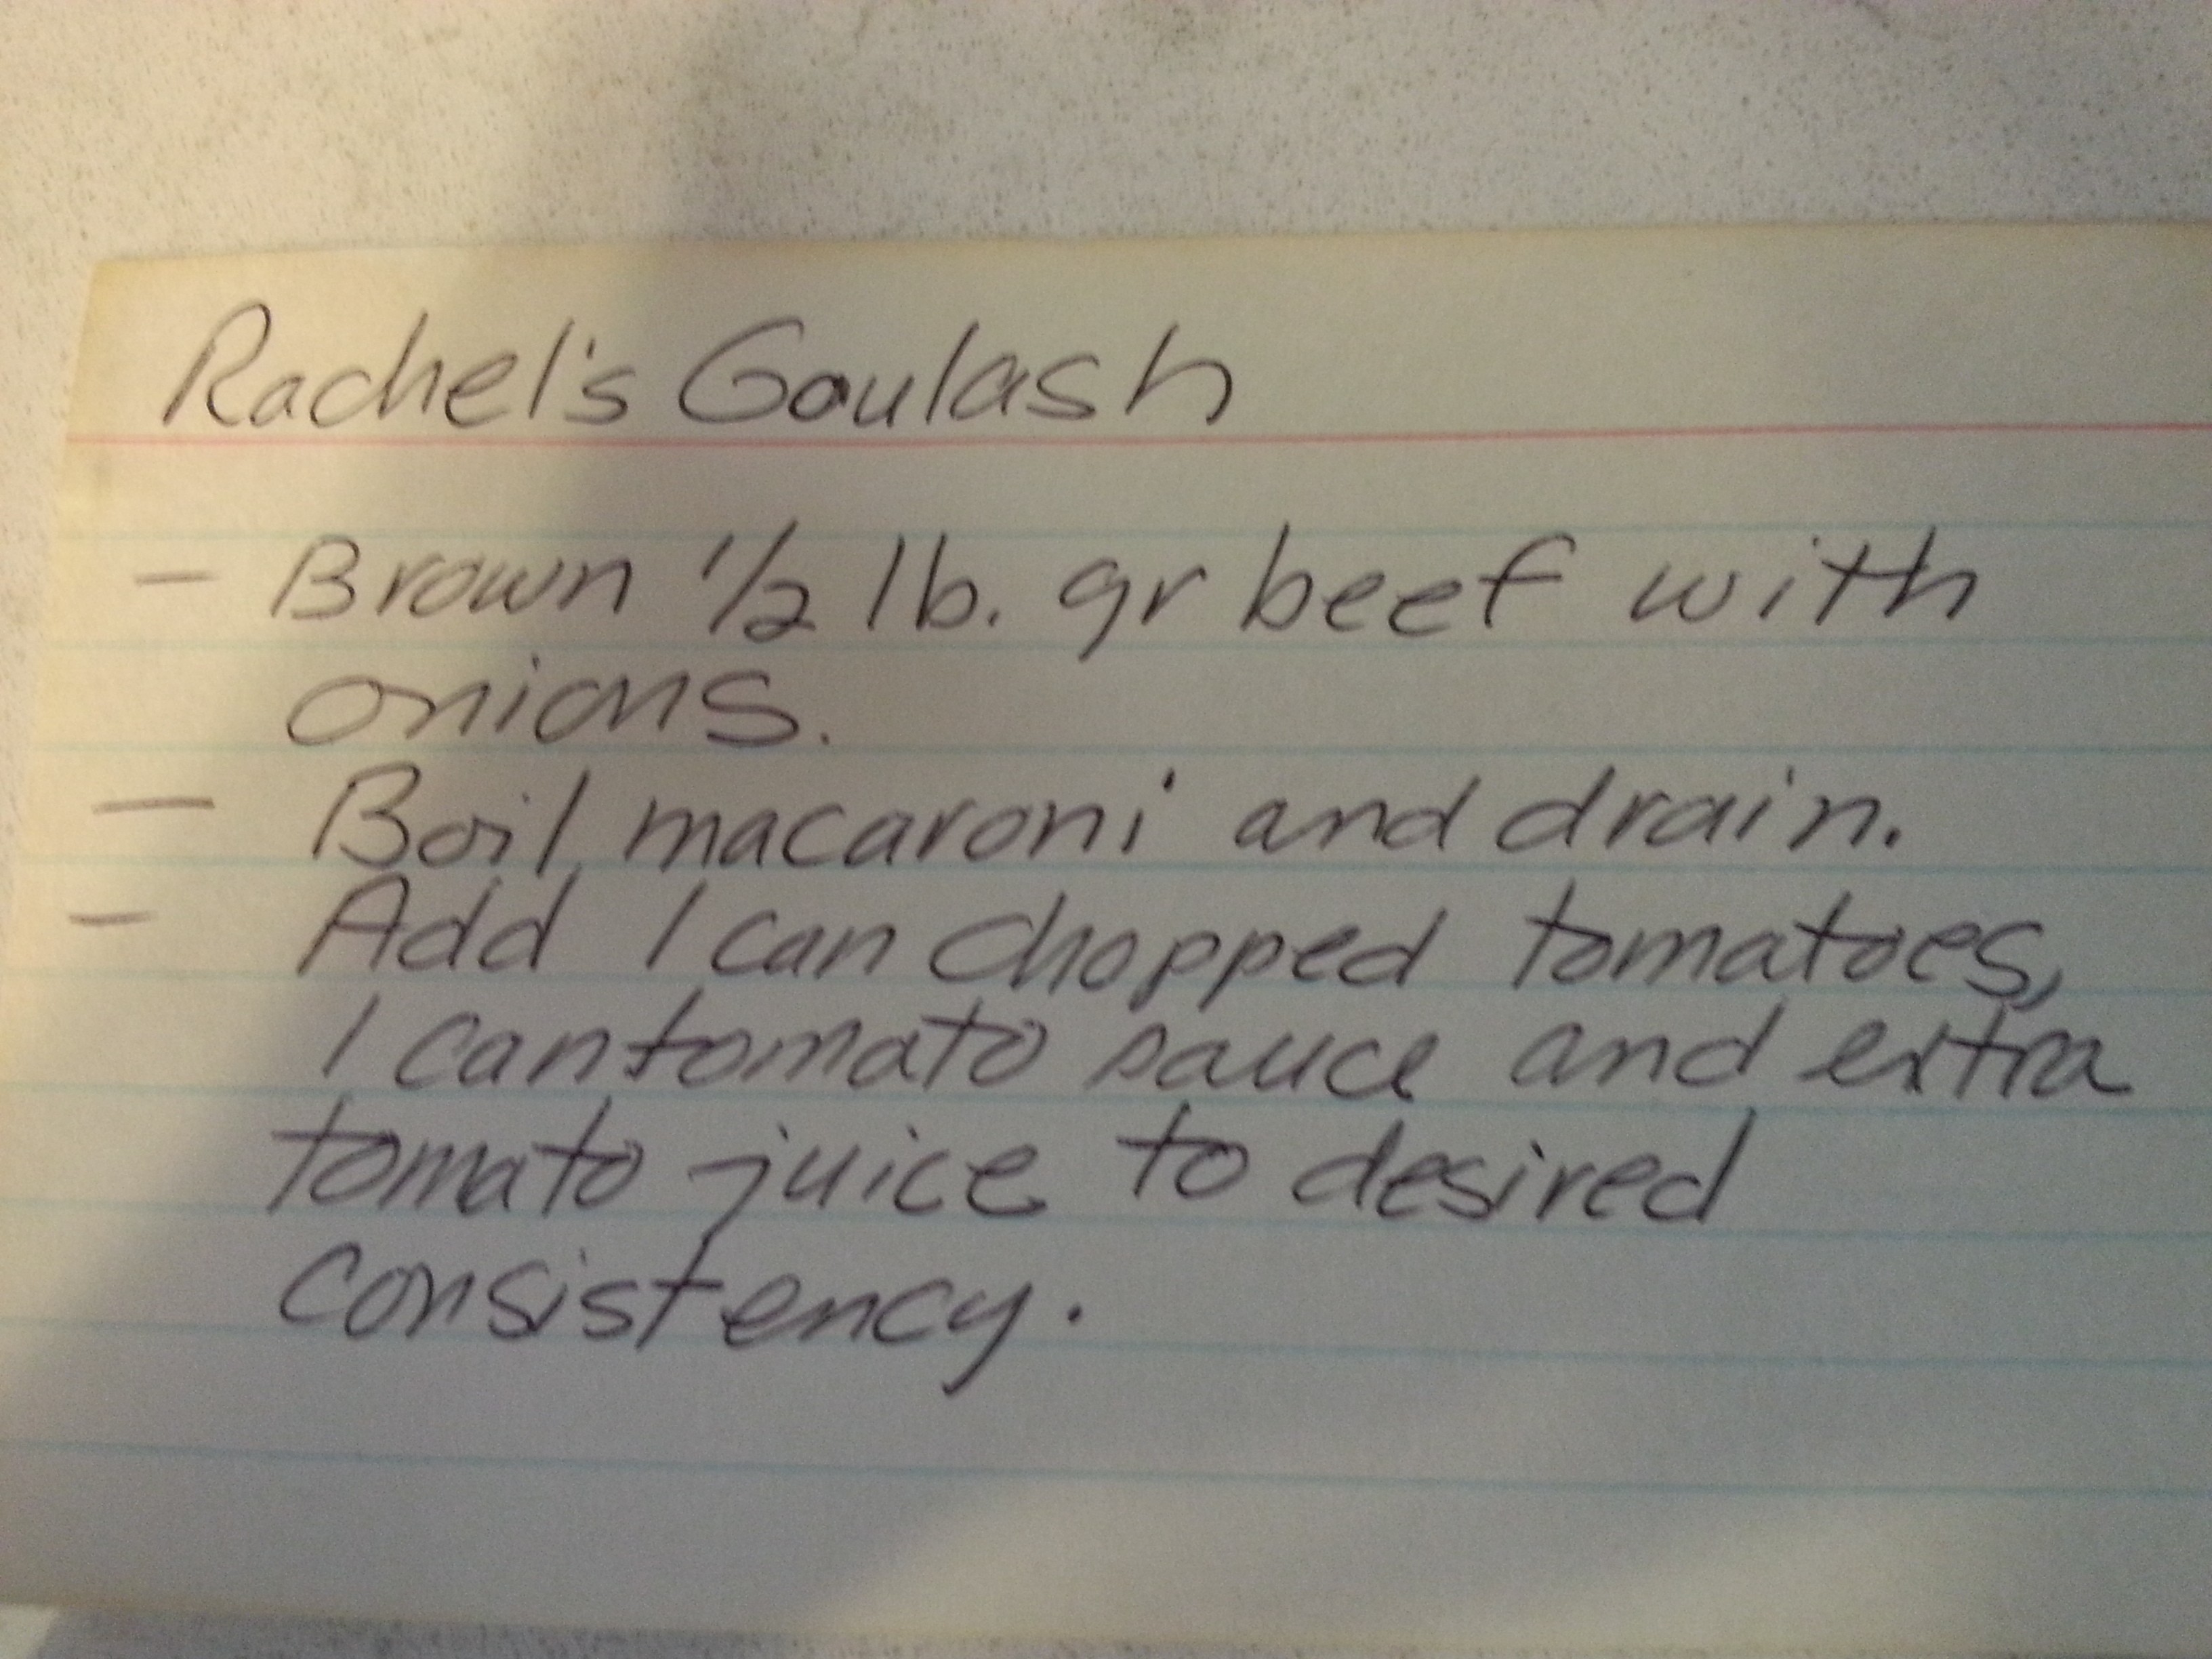 Rachel's Goulash
- Brown 1/2 lb. gr beef with
onions.
- Boil macaroni and drain.
- Add 1 can chopped tomatoes,
1 can tomato sauce and extra
tomato juice to desired
consistency.